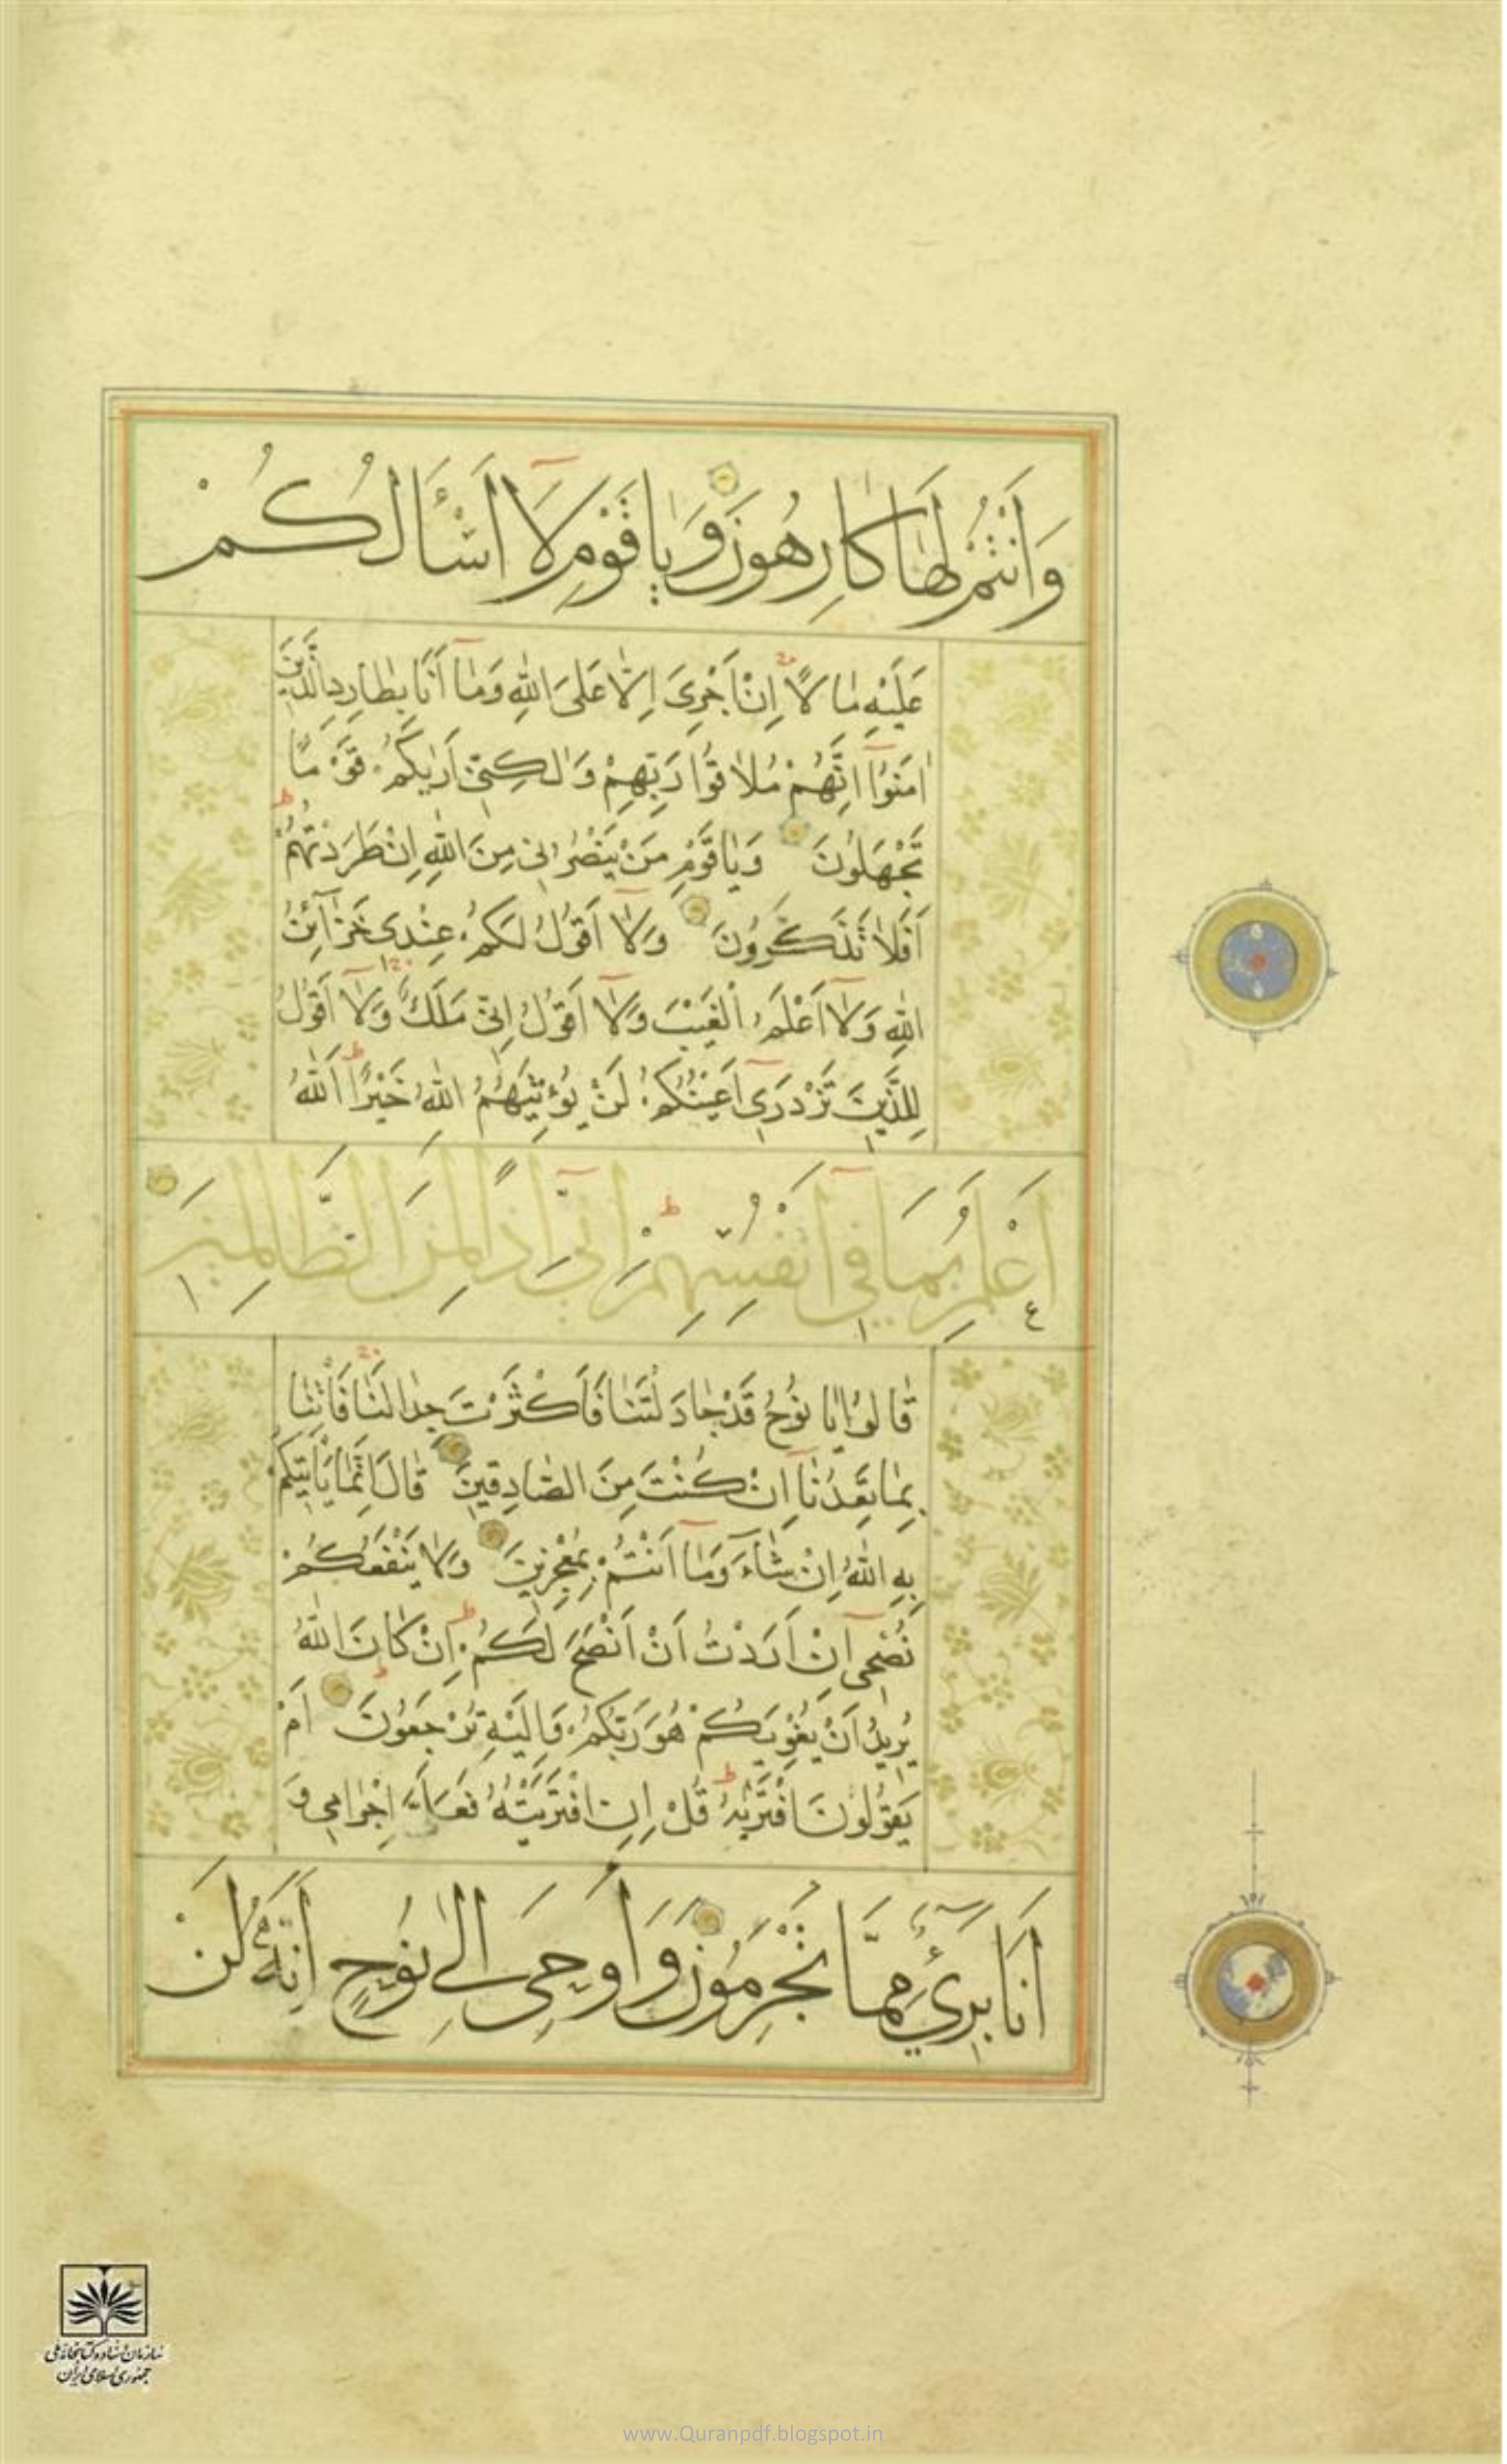 وَاَنْتُمْ لَهٰا كٰارِهُونَ وَيٰا قَوْمِ لَا اَسْأَلُكُمْ
عَلَيْهِ مٰالًا اِنْ اَجْرِىَ اِلّٰا عَلَى اللّٰهِ وَمٰا اَنَا بِطٰارِدِ الَّذِينَ
اٰمَنُوا اِنَّهُمْ مُلٰاقُوا رَبِّهِمْ وَلٰكِنِّى اَرٰيكُمْ قَوْمًا
تَجْهَلُونَ وَيٰا قَوْمِ مَنْ يَنْصُرُنِى مِنَ اللّٰهِ اِنْ طَرَدْتُهُمْ
اَفَلٰا تَذَكَّرُونَ وَلٰا اَقُولُ لَكُمْ عِنْدِى خَزٰآئِنُ
اللّٰهِ وَلٰا اَعْلَمُ الْغَيْبَ وَلٰا اَقُولُ اِنِّى مَلَكٌ وَلٰا اَقُولُ
لِلَّذِينَ تَزْدَرِى اَعْيُنُكُمْ لَنْ يُؤْتِيَهُمُ اللّٰهُ خَيْرًا اَللّٰهُ
اَعْلَمُ بِمَا فِى اَنْفُسِهِمْ اِنِّى اِذًا لَمِنَ الظَّالِمِينَ
قٰالُوا يٰا نُوحُ قَدْ جٰادَلْتَنٰا فَاَكْثَرْتَ جِدٰالَنٰا فَأْتِنٰا
بِمٰا تَعِدُنٰا اِنْ كُنْتَ مِنَ الصّٰادِقِينَ قٰالَ اِنَّمٰا يَأْتِيكُمْ
بِهِ اللّٰهُ اِنْ شٰآءَ وَمٰا اَنْتُمْ بِمُعْجِزِينَ وَلٰا يَنْفَعُكُمْ
نُصْحِى اِنْ اَرَدْتُ اَنْ اَنْصَحَ لَكُمْ اِنْ كٰانَ اللّٰهُ
يُرِيدُ اَنْ يُغْوِيَكُمْ هُوَ رَبُّكُمْ وَاِلَيْهِ تُرْجَعُونَ اَمْ
يَقُولُونَ افْتَرٰيهُ قُلْ اِنِ افْتَرَيْتُهُ فَعَلَىَّ اِجْرٰامِى وَ
اَنَا بَرِىءٌ مِمَّا تُجْرِمُونَ وَاُوحِىَ اِلٰى نُوحٍ اَنَّهُ لَنْ
سازمان اسناد و کتابخانه ملی
جمهوری اسلامی ایران
www.Quranpdf.blogspot.in